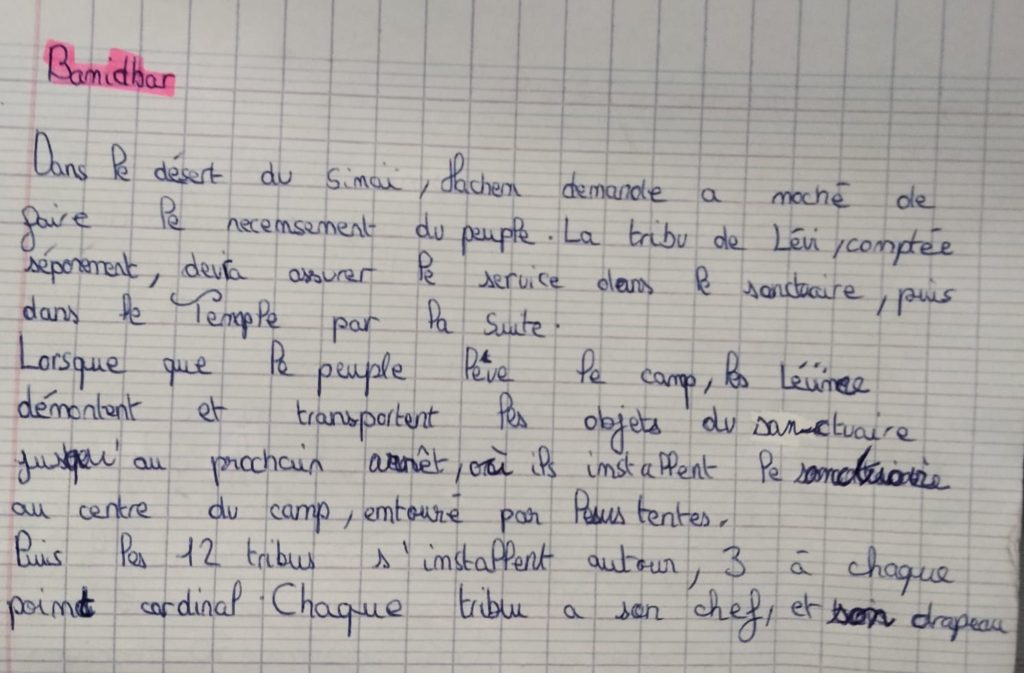 Bamidbar
Dans le désert du Simaï, Hachem demande a moché de
faire le necemsement du peuple. La tribu de Lévi, comptée
séporément, devra assurer le service dans le sanctuaire, puis
dans le Temple par la suite.
Lorsque que le peuple lève le camp, les
démontent et transportent les objets du sanctuaire
jusqu'au prochain arrêt, où ils installent le sanctuaire
au centre du camp, entouré par leurs tentes.
Puis les 12 tribus s'installent autour, 3 à chaque
point cardinal. Chaque tribu a son chef, et son drapeau